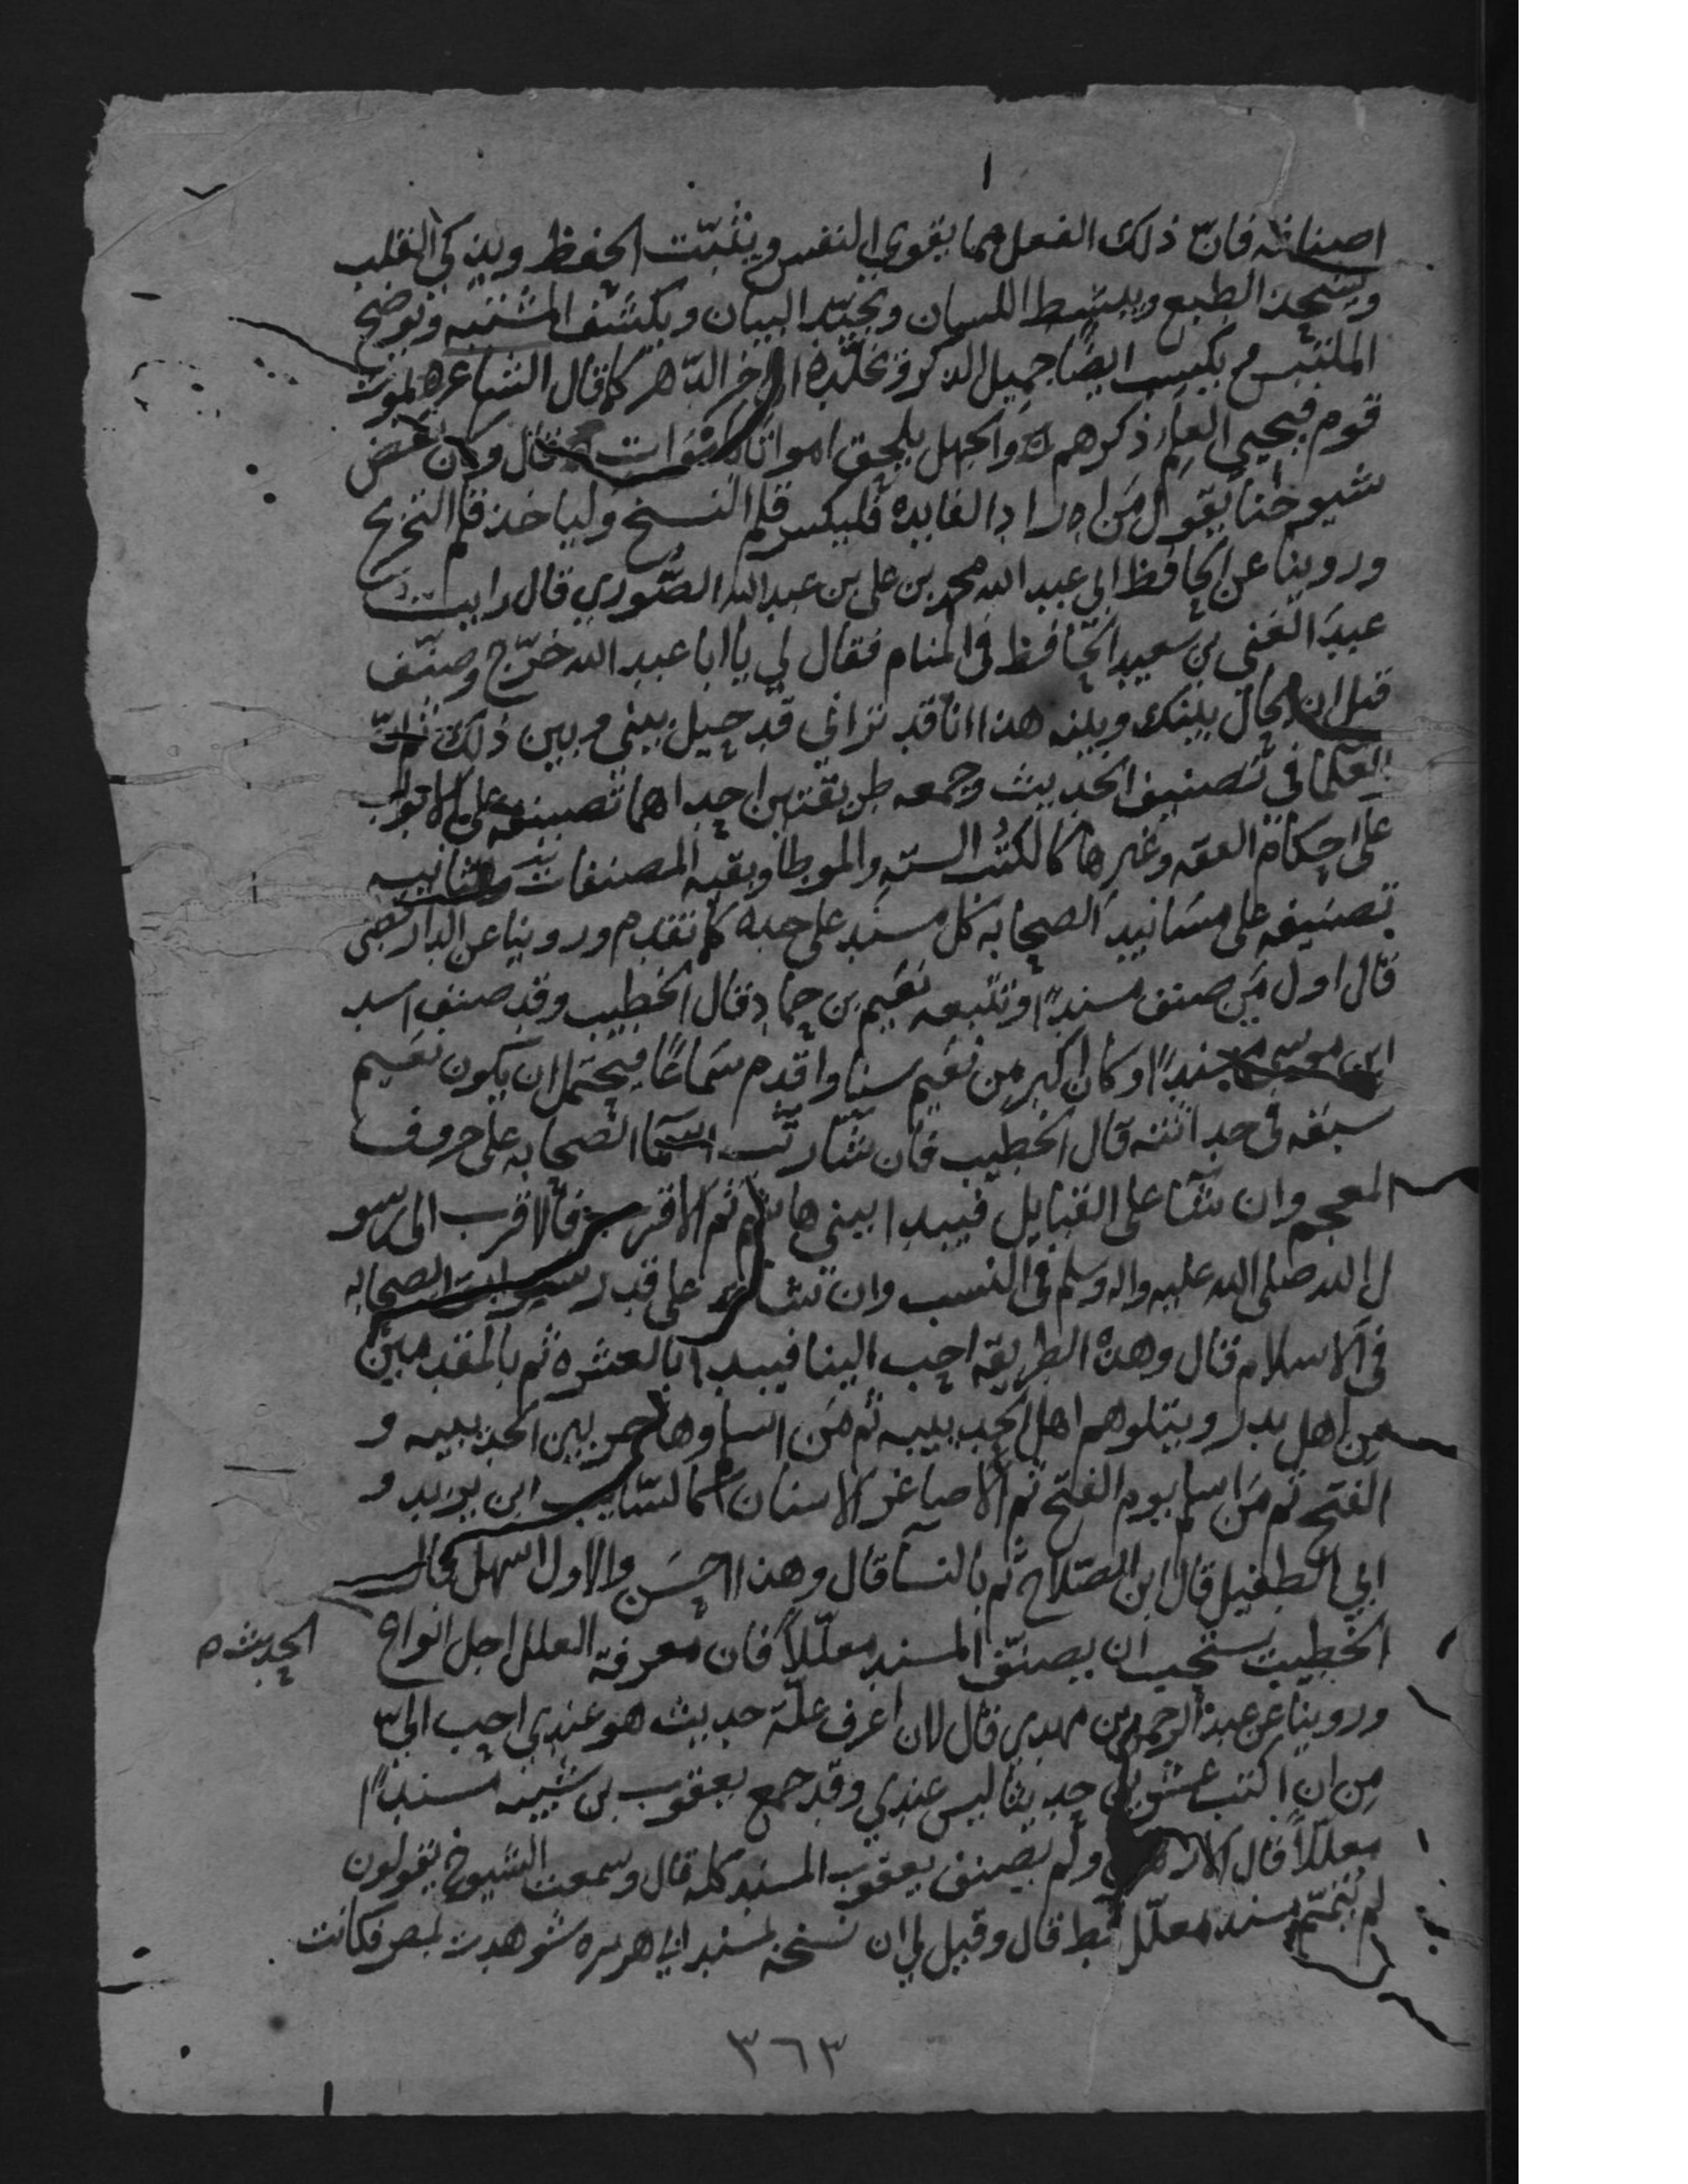 اصنافه فان ذلك الفعل مما يقوي النفس ويثبت الحفظ ويذكي القلب
ويشحذ الطبع ويبسط اللسان ويجيد البيان ويكشف المشتبه ويوضح
الملتبس ويكسب ايضا جميل الذكر وتخليده الى اخر الدهر كما قال الشاعر يموت
قوم فيحيي العلم ذكرهم والجهل يلحق امواتا باموات قال وكان بعض
شيوخنا يقول من اراد الفايده فليكسر قلم النسخ ولياخذ قلم التخريج
وروينا عن الحافظ ابي عبد الله محمد بن علي بن عبد الله الصوري قال رايت
عبد الغني بن سعيد الحافظ في المنام فقال لي يا ابا عبد الله خرج وصنف
قبل ان يحال بينك وبينه هذا انا قد تراني قد حيل بيني وبين ذلك
العلما في تصنيف الحديث وجمعه طريقتين احداهما تصنيفه على الابواب
على احكام الفقه وغيرها كالكتب السته والموطا وبقيه المصنفات والثانيه
تصنيفه على مسانيد الصحابه كل مسند على حده كما تقدم وروينا عن الدارقطني
قال اول من صنف مسندا وتتبعه نعيم بن حماد قال الخطيب وقد صنف اسد
ابن موسى مسندا وكان اكبر من نعيم سنا واقدم سماعا فيحتمل ان يكون نعيم
سبقه في حداثته قال الخطيب فان شا رتب اسما الصحابه على حروف
المعجم وان شا على القبايل فيبدا ببني هاشم ثم الاقرب فالاقرب الى رسو
ل الله صلى الله عليه واله وسلم في النسب وان شا على قدر سوابق الصحابه
في الاسلام قال وهذه الطريقه احب الينا فيبدا بالعشره ثم بالمقدمين
من اهل بدر ويتلوهم اهل الحديبيه ثم من اسلم وهاجر بين الحديبيه و
الفتح ثم من اسلم يوم الفتح ثم الاصاغر الاسنان كالسايب ابن يزيد و
ابي الطفيل قال ابن الصلاح ثم بالنسا قال وهذا احسن والاول اسهل قال
الخطيب يستحب ان يصنف المسند معللا فان معرفة العلل اجل انواع الحديث
وروينا عن عبد الرحمن بن مهدي قال لان اعرف علة حديث هو عندي احب الي
من ان اكتب عشرين حديثا ليس عندي وقد جمع يعقوب بن شيبه مسندا
معللا قال الازهري ولم يصنف يعقوب المسند كله قال وسمعت الشيوخ يقولون
لم يتمم مسند معلل قط قال وقيل لي ان نسخه لمسند ابي هريره شوهدت بمصر فكانت
٣٦٣